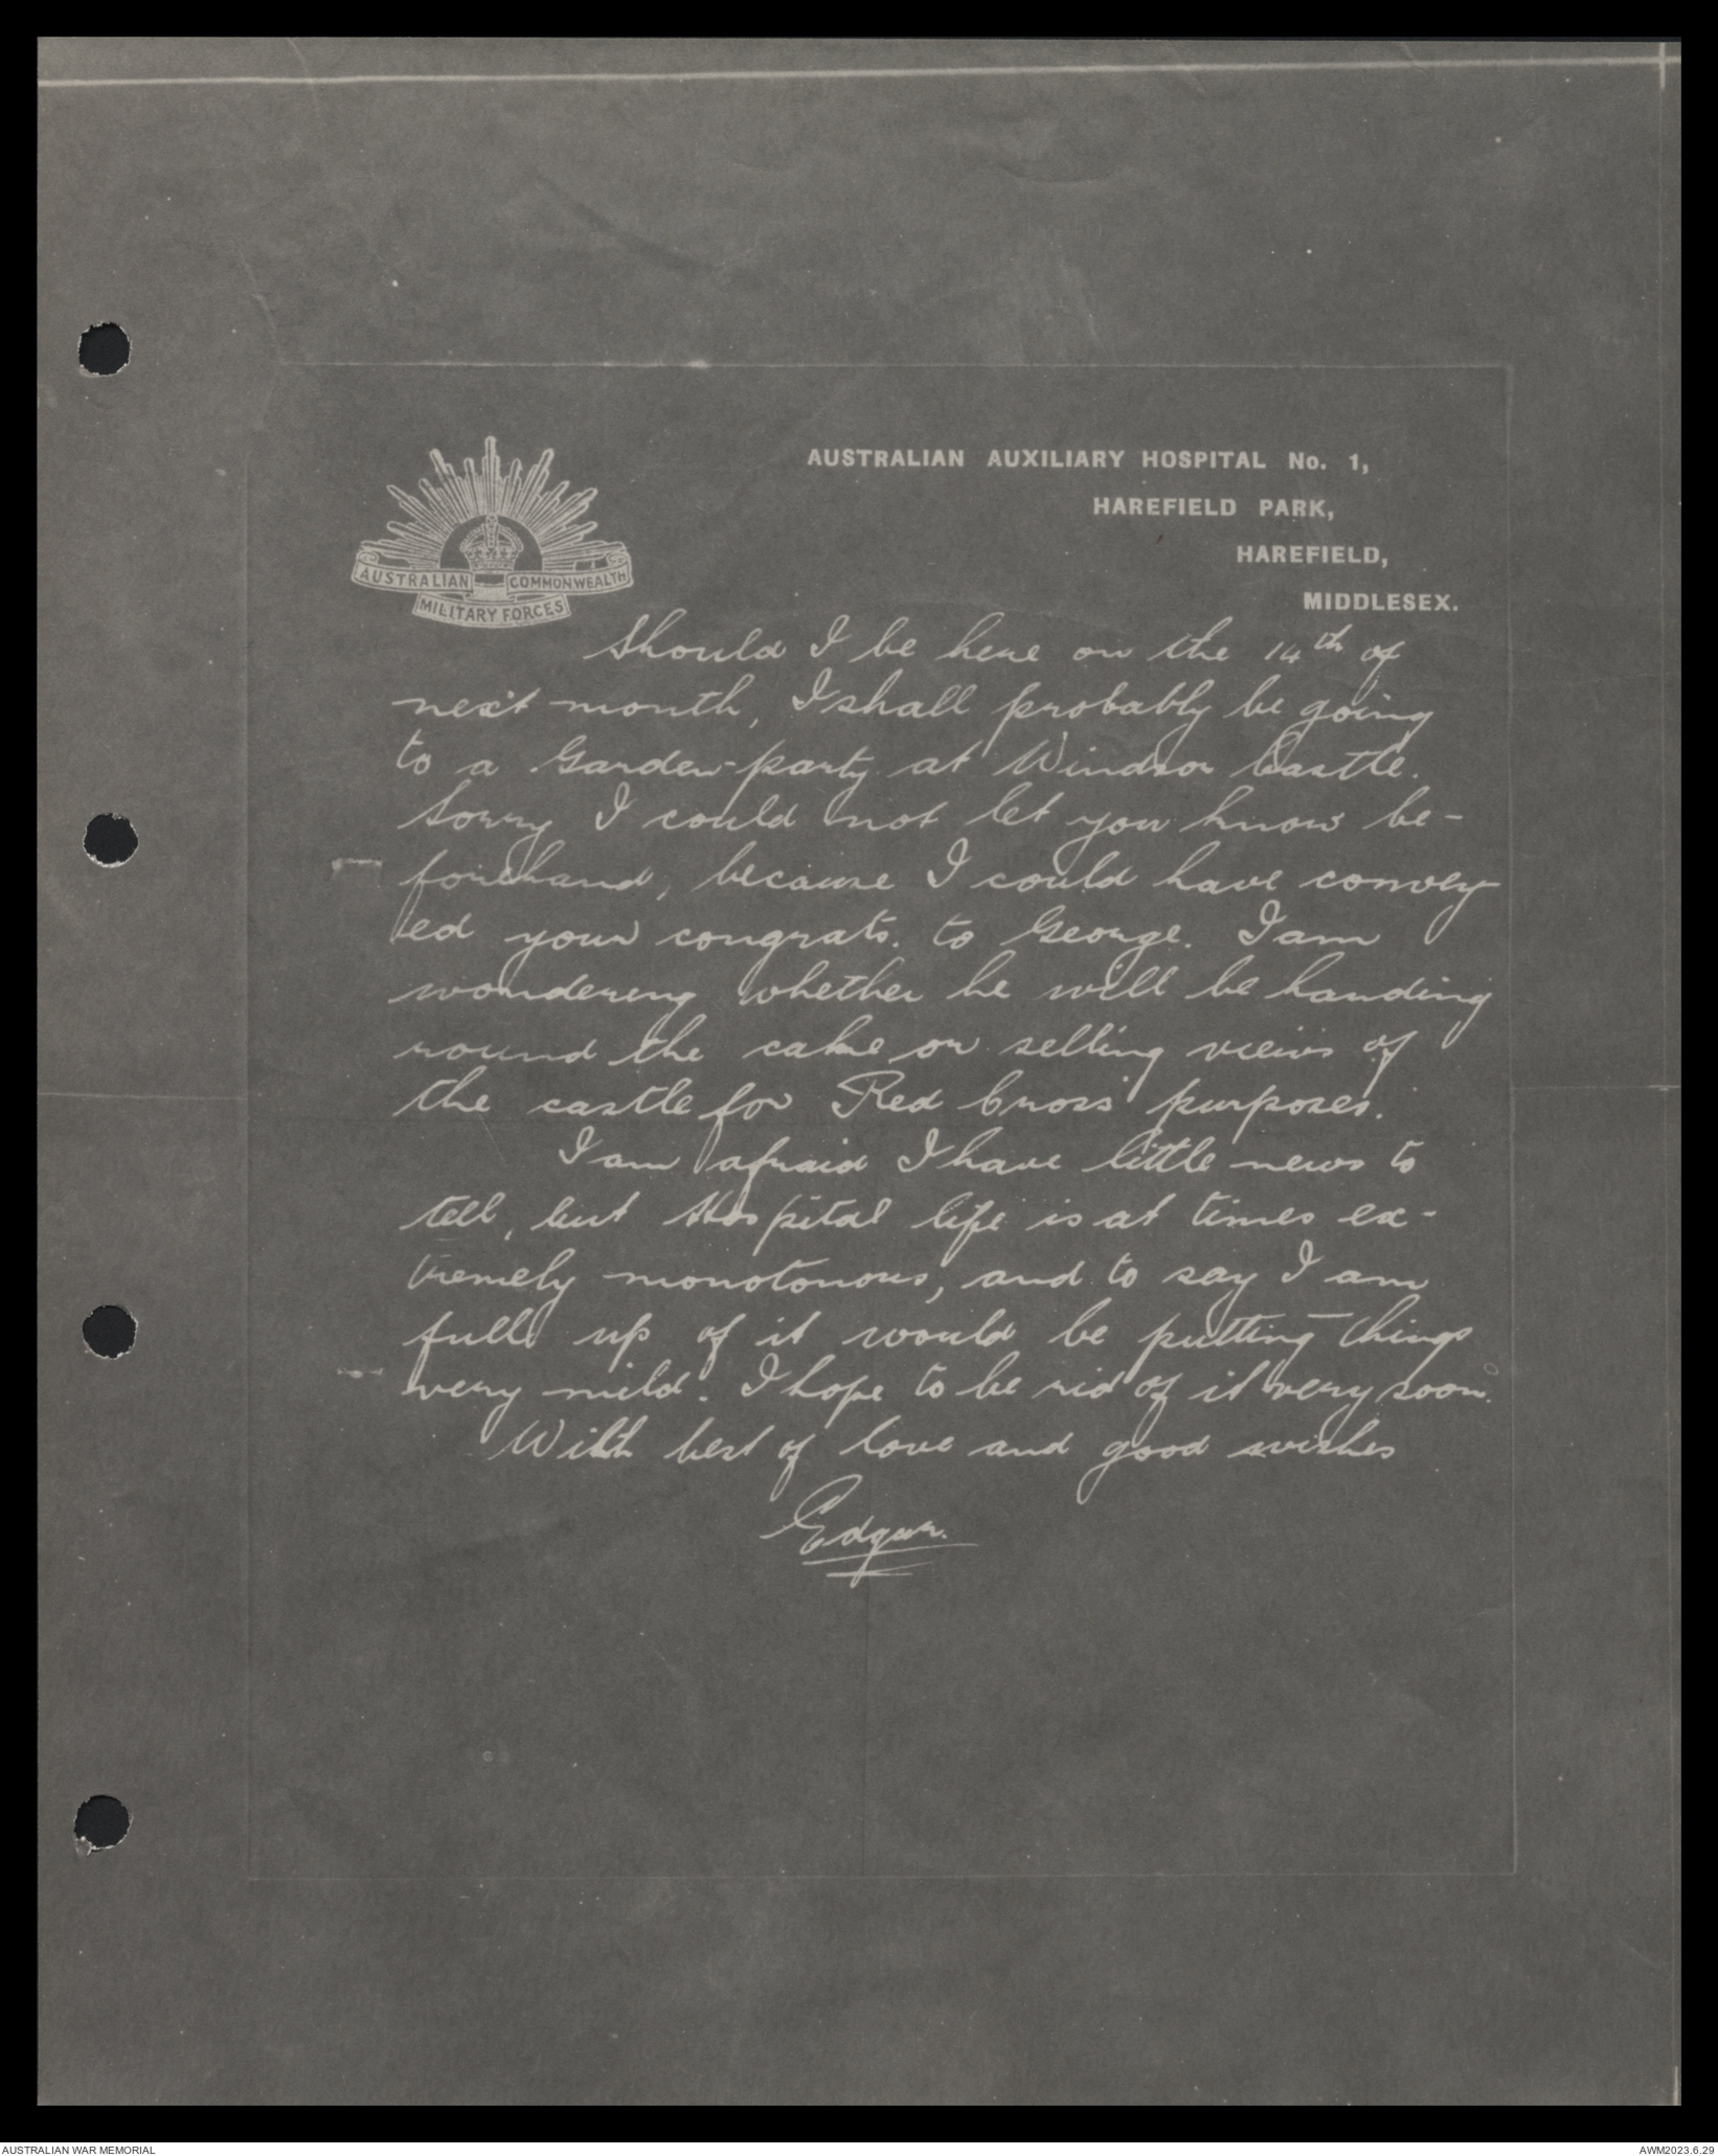 AUSTRALIAN COMMONWEALTH
MILITARY FORCES
AUSTRALIAN AUXILIARY HOSPITAL No. 1,
HAREFIELD PARK,
HAREFIELD,
MIDDLESEX.
Should I be here on the 14th of
next month, I shall probably be going
to a Garden-party at Windsor Castle.
Sorry I could not let you know be-
forehand, because I could have convey-
ed your congrats. to George. I am
wondering whether he will be handing
round the cake or selling views of
the castle for Red Cross purposes.
I am afraid I have little news to
tell, but Hospital life is at times ex-
tremely monotonous, and to say I am
full up of it would be putting things
very mild. I hope to be rid of it very soon.
With best of love and good wishes
Edgar.
AUSTRALIAN WAR MEMORIAL
AWM2023.6.29